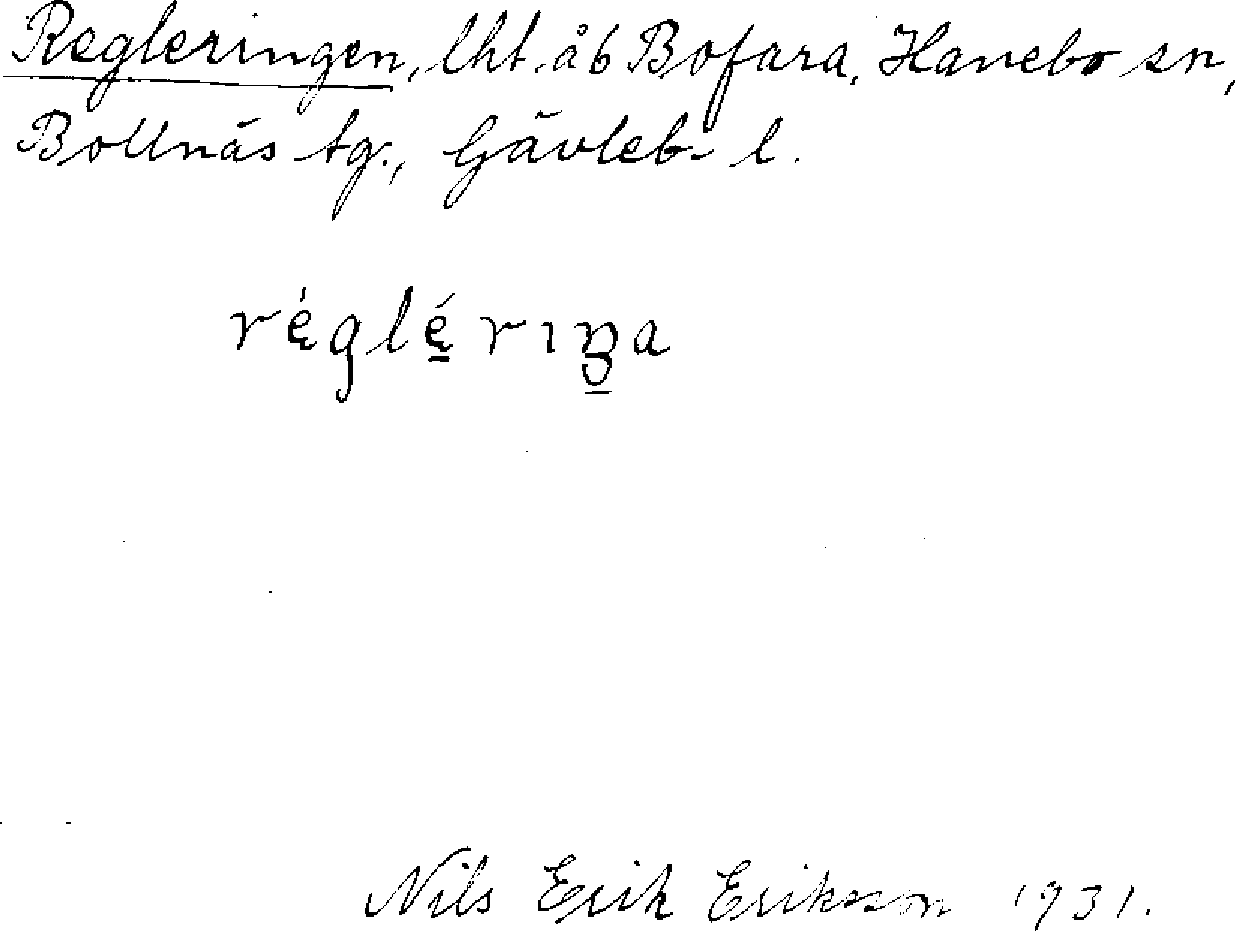 Regleringen, lht. å b Bofara, Hanebo sn,
Bollnäs tg., Gävleb- l.
réglé̱rıŋ̱a
Nils Erik Eriksson 1931.